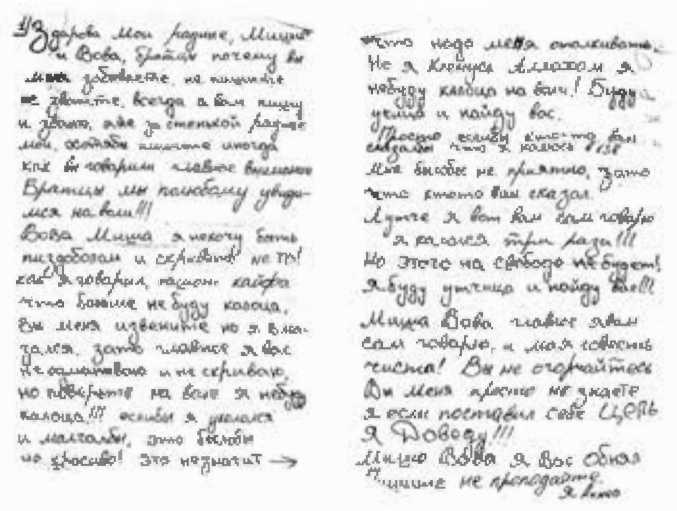 Здарова мои радние, Миша
и Вова, братцы почему вы
меня забываете, не пишите
не званите, всегда я вам пишу
и званю, я же за стенькой радные
мои, хотябы пишите иногда
как вы говарили главное внимание
Братцы мы полюбому увиди-
мся на воли!!!
Вова Миша я нехочу быть
и скрывать не то!
как я говарил,
что больше не буду калоца,
Вы меня извените но я
зато главное я вас
не и не скриваю,
но поверьте на воле я небуду
калоца!!! еслибы я укололся
и малчалбы, это былобы
не красиво! Это незначит →
что надо меня аталкивать.
Но я Клянусь Аллахом я
небуду калоца на воли! Буду
и найду вас.
Просто еслибы ктото вам
сказалбы что я калюсь
мне былобы не приятно, зато
что ктото вам сказал.
Лутче я вот вам сам говарю
я калолся три раза!!!
Но этого на свободе не будет!
Я буду и найду вас!!!
Миша Вова главное я вам
сам говарю, и моя совесть
чиста! Вы не огорчайтесь
Вы меня просто не знаете
я если поставил себе ЦЕЛЬ
Я Доведу!!!
Миша Вова я Вас Обнял
Пишите не пропадайте.
Я